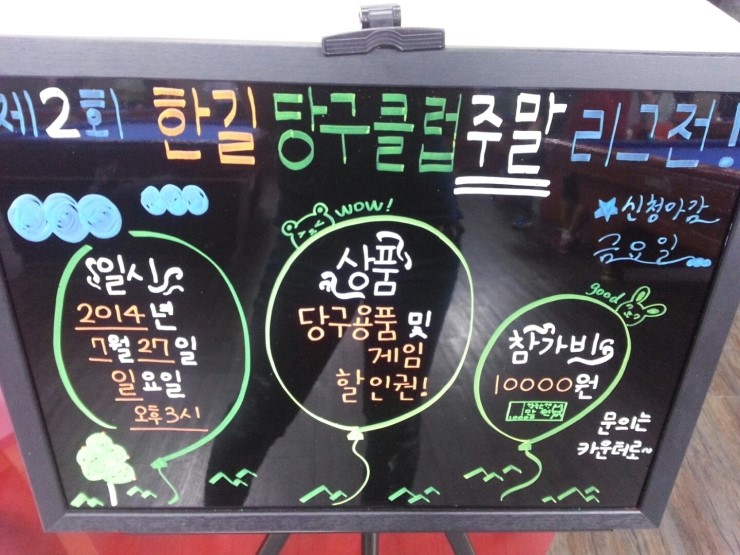 제2회 한길 당구클럽 주말 리그전!
WOW!
★신청마감
금요일
일시
2014년
7월 27일
일요일
오후3시
상품
당구용품 및
게임
할인권!
good
참가비
10000원
문의는
카운터로~